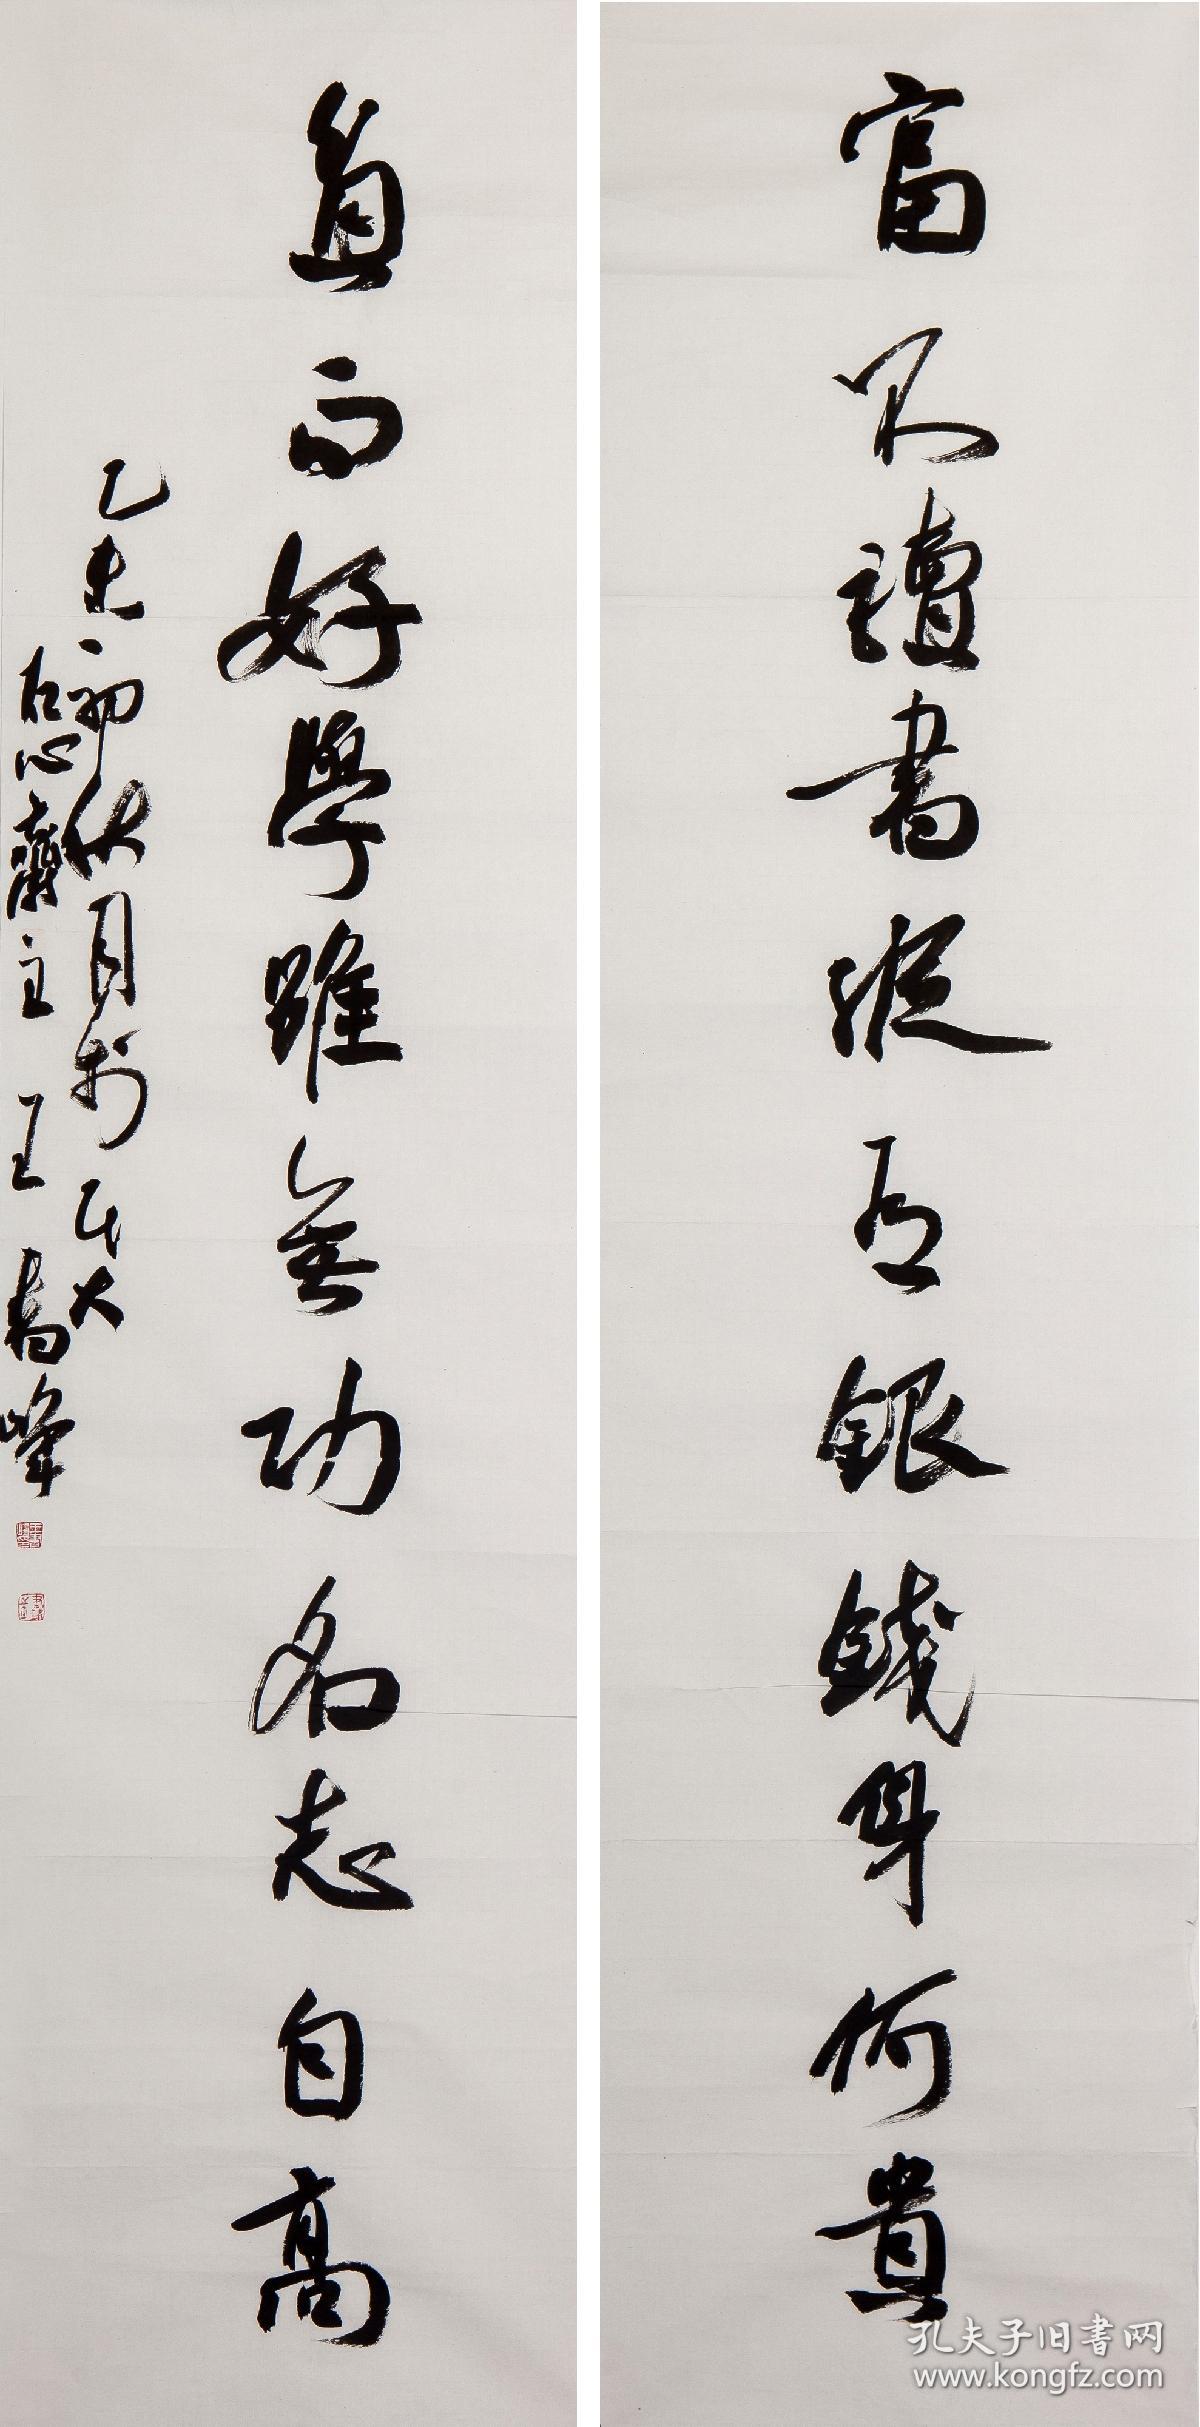 富不讀書縱有銀錢身何貴
貧而好學雖無功名志自高
乙未初伏月於民大
居心齋主王書峰
孔夫子旧书网
www.kongfz.com